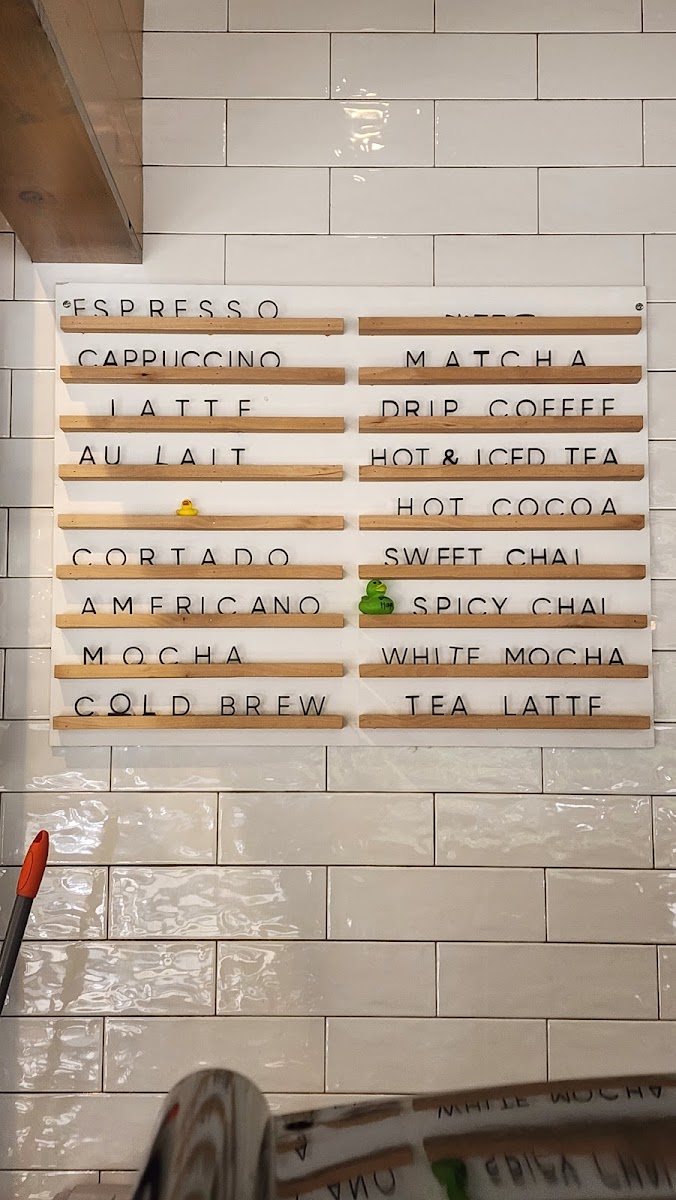 ESPRESSO
CAPPUCCINO
LATTE
AU LAIT
CORTADO
AMERICANO
MOCHA
COLD BREW
MATCHA
DRIP COFFEE
HOT & ICED TEA
HOT COCOA
SWEET CHAI
SPICY CHAI
WHITE MOCHA
TEA LATTE